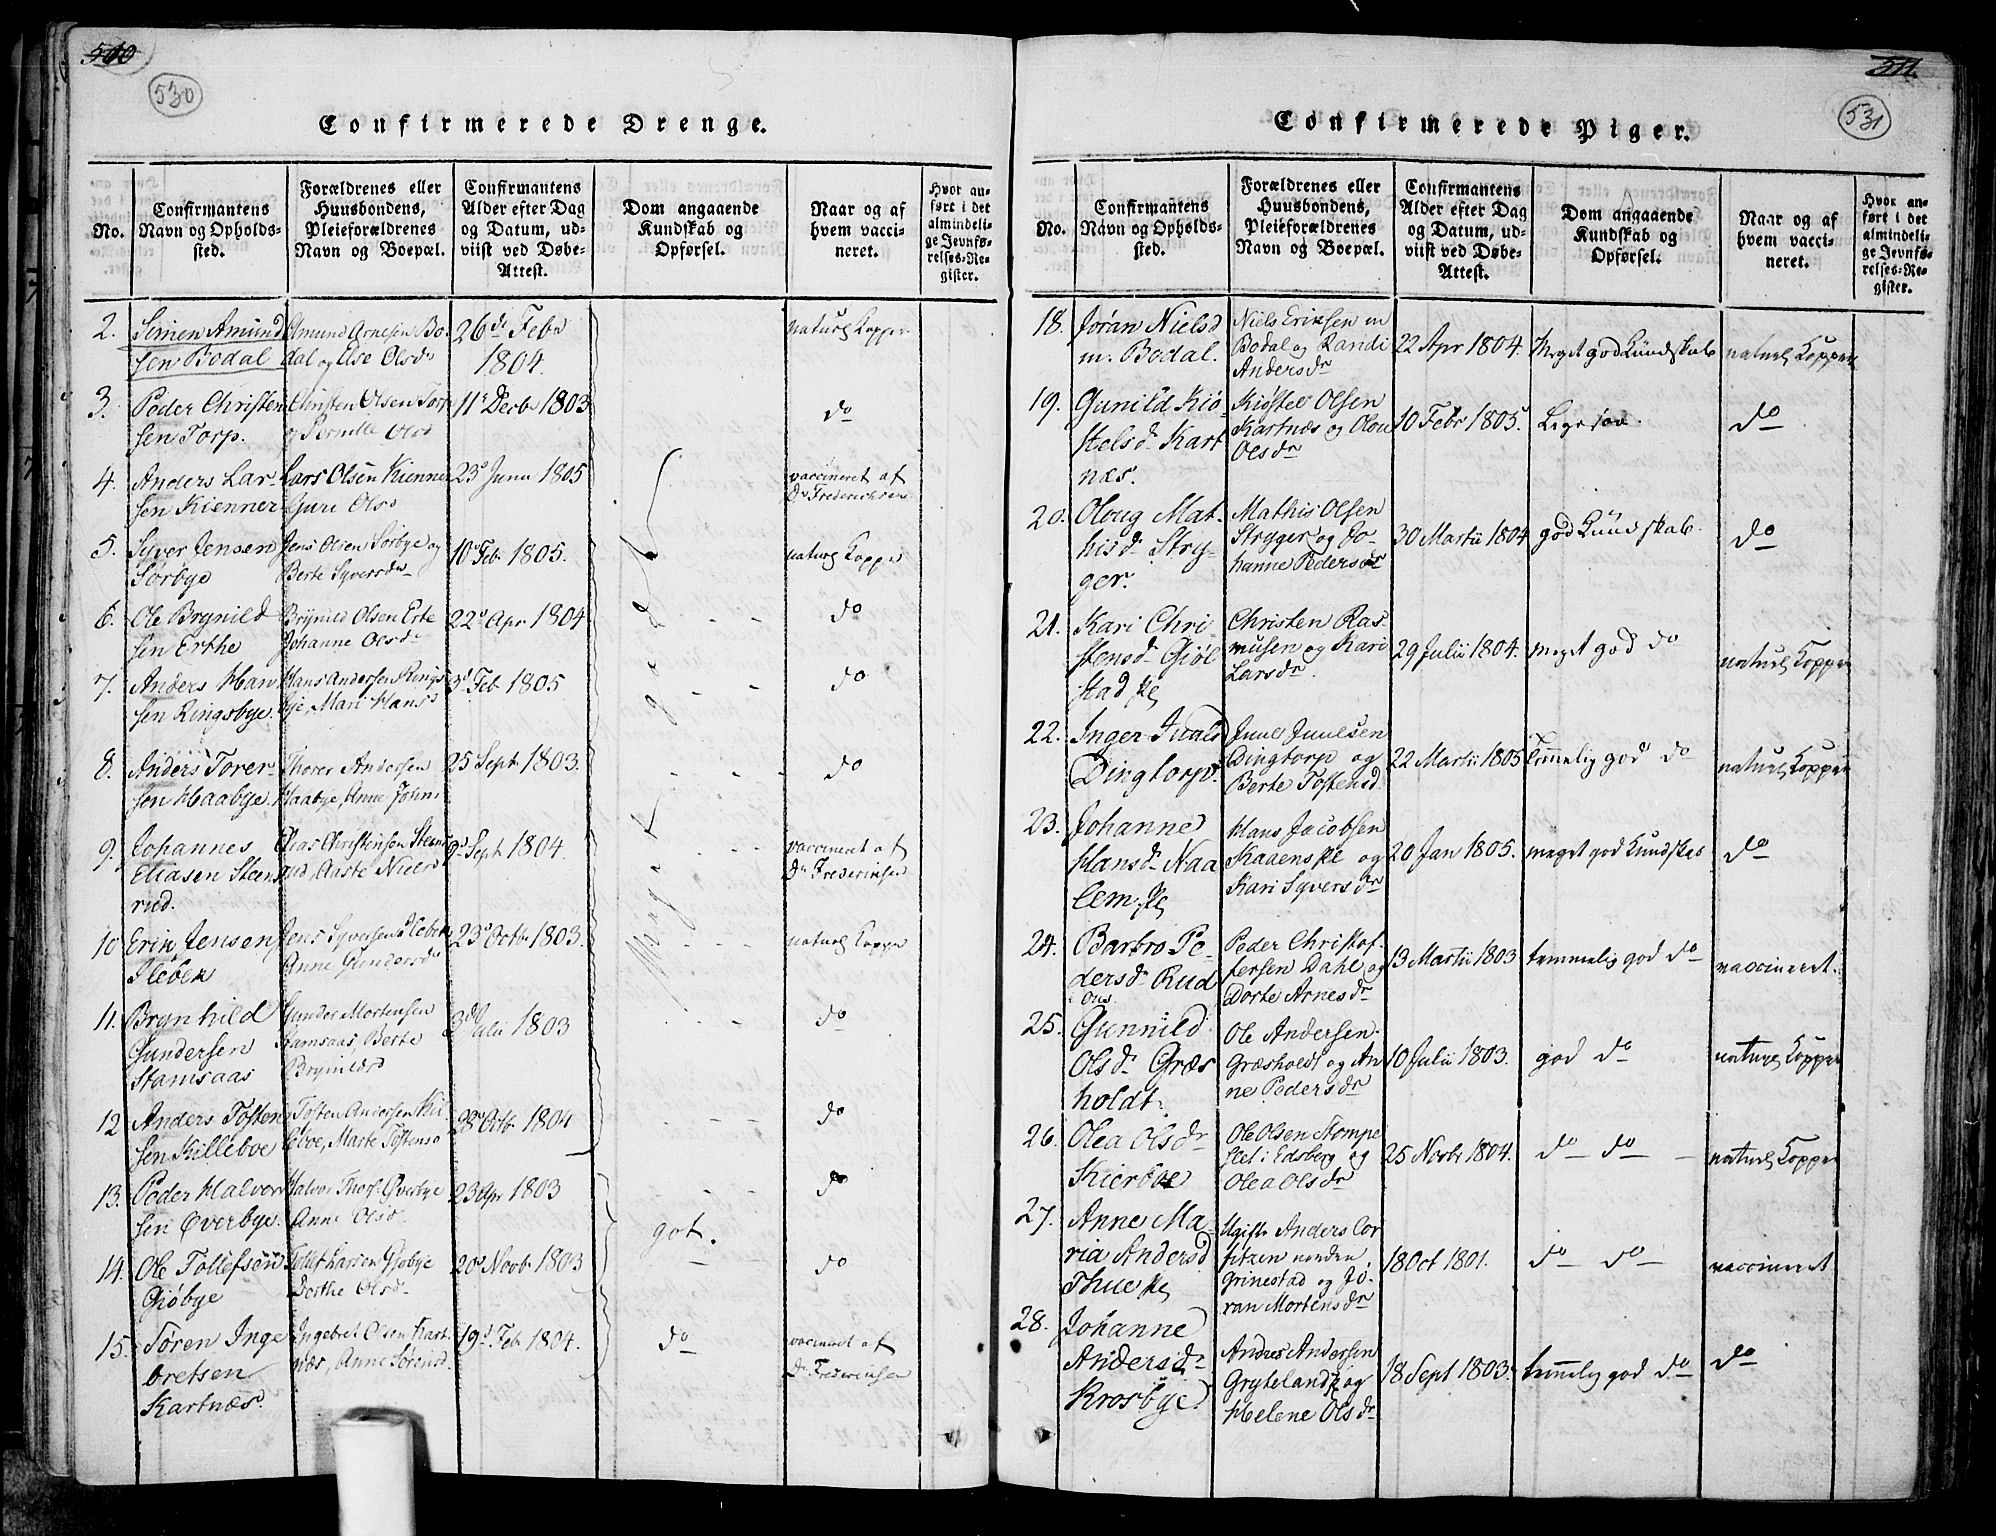 510
530
Confirmerede Drenge.
No.
Confirmantens
Navn og Opholds-
sted.
Forældrenes eller
Huusbondens,
Pleieforældrenes
Navn og Boepæl.
Confirmantens
Alder efter Dag
og Datum, ud-
viist ved Døbe-
Attest.
Dom angaaende
Kundskab og
Opførsel.
Naar og af
hvem vacci-
neret.
Hvor an-
ført i det
almindeli-
ge Jevnfø-
relses-Re-
gister.
2.
Simen Amund
sen Bodal
Amund Arnesen Bo-
dal og Else Olsdr
26de Febr
1804.
naturl Kopper
3.
Peder Christen
sen Torp.
Christen Olsen Torp
og Pernille Olsd
11te Decbr 1803
do
4.
Anders Lar-
sen Kienner
Lars Olsen Kienner
Guri Olsd
23de Junii 1805
vaccineret af
Dr Frederichsen
5.
Syver Jensen
Sørbye
Jens Olsen Sørbye og
Berte Syversdr
10de Feb 1805.
naturl Kopper
6.
Ole Brynild
sen Erthe
Brynild Olsen Erte
Johanne Olsdr
22de Apr 1804
do
7.
Anders Han
sen Ringsbye.
Hans Andersen Rings
bye, Mari Hansd
3d Feb 1805
do
8.
Anders Torer-
sen Haabye.
Thorer Andersen
Haabye, Anne Johns
25 Sept 1803.
do
9.
Johannes
Eliasen Steens
rud.
Elias Christensen Steens
rud, Aaste Nielsd
9d Sept 1804.
vaccineret af
Dr Frederichsen
Meget godt
10
Eric Jensen
Ileben
Jens Syversen Ileben
Anne Gundersdr
23d Octbr 1803.
naturl Kopper
11.
Brynhild
Gundersen
Stamsaas
Gunder Mortensen
Stamsaas, Berte
Brynildsd
3die Julii 1803
do
12
Anders Tosten
sen Killeboe
Tosten Andersen Kil
leboe, Marte Tostensd
28de Octbr 1804
do
13.
Peder Halvor
sen Overbye.
Halvor Thors. Overbye
Anne Olsd.
23 Apr 1803
got.
do
14.
Ole Tollefsen
Giøbye
Tollef Larsen Gjobye
Berthe Olsd
20de Novbr 1803
do
15.
Søren Inge
bretsen
Kartnæs.
Ingebret Olsen Kart
næs, Anne Sørensd.
19d Feb 1804.
do
vaccineret af
Dr Frederichsen
511.
531
Confirmerede Piger.
No.
Confirmantens
Navn og Opholds-
sted.
Forældrenes eller
Huusbondens,
Pleieforældrenes
Navn og Boepæl.
Confirmantens
Alder efter Dag
og Datum, ud-
viist ved Døbe-
Attest.
Dom angaaende
Kundskab og
Opførsel.
Naar og af
hvem vacci-
neret.
Hvor an-
ført i det
almindeli-
ge Jevnfø-
relses-Re-
gister.
18.
Jøran Nielsd
m. Bodal.
Niels Eriksen m
Bodal og Randi
Andersdr
22 Apr 1804.
Meget god Kundskab
naturl Kopper
19.
Gunild Kiø-
stelsdr Kart
næs.
Kiøstel Olsen
Kartnæs og Oloug
Olsdr
10 Febr 1805.
Ligesaa.
do
20.
Oloug Mat-
hisdr Stry-
ger.
Mathis Olsen
Stryger og Jo-
hanne Pedersdr
30 Martii 1804
god Kundskab.
do
21.
Kari Chri-
stensdr Giøl
stad
Christen Ras
musen og Kari
Larsdr.
29 Julii 1804.
meget god do
naturl Kopper
22.
Inger Juulsd
Dingtorp.
Juul Juulsen
Dingtorp og
Berte Tostensd
22 Martii 1805
temmelig god do
naturl Kopper
23.
Johanne
Hansdr Naa
lem
Hans Jacobsen
og
Kari Syversdr
20 Jan 1805.
meget god Kundskab
do
24.
Barbro Pe-
dersdr Rud
Peder Christof-
fersen Dahl og
Dorte Arnesdr
13 Martii 1803
temmelig god do
vaccineret.
25.
Gunnild
Olsdr Græs
holdt.
Ole Andersen
Græsholdt og An
ne Pedersdr
10 Julii 1803.
god do
naturl Kopper
26.
Olea Olsdr
Kierboe
Ole Olsen Stompe
i Edsberg og
Olea Olsdr
25 Novbr 1804.
do do
naturl Kopper
27.
Anne Ma-
ria Andersd
Thue
Ugifte Anders Cor
fitzen nordre
Grinestad og Jø-
ran Mortensdr
18 Oct 1801.
do do
vaccineret
28.
Johanne
Andersdr
Krosbye
Andres Andersen
Gryteland og
Helene Olsdr
18 Sept 1803.
temmelig god do
do